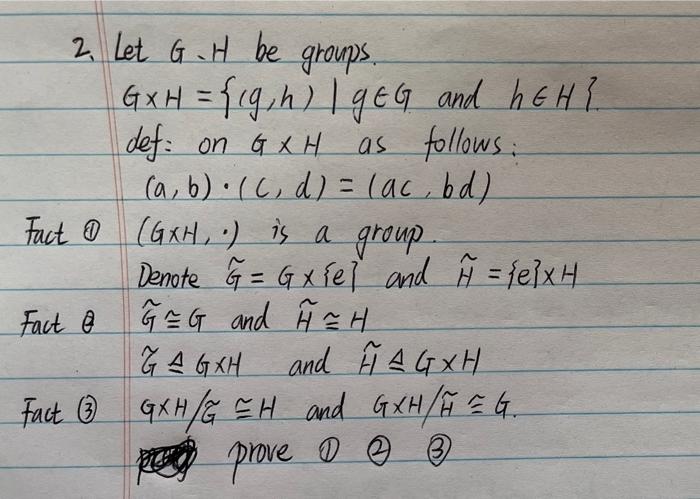 2. Let G、H be groups.
G×H = {(g,h) | g∈G and h∈H}.
def: on G×H as follows:
(a,b)·(c,d) = (ac, bd)
Fact ① (G×H, ·) is a group.
Denote G̃ = G×{e} and H̃ = {e}×H
Fact ② G̃ ≅ G and H̃ ≅ H
G̃ ⊴ G×H and H̃ ⊴ G×H
Fact ③ G×H/G̃ ≅ H and G×H/H̃ ≅ G.
prove ① ② ③